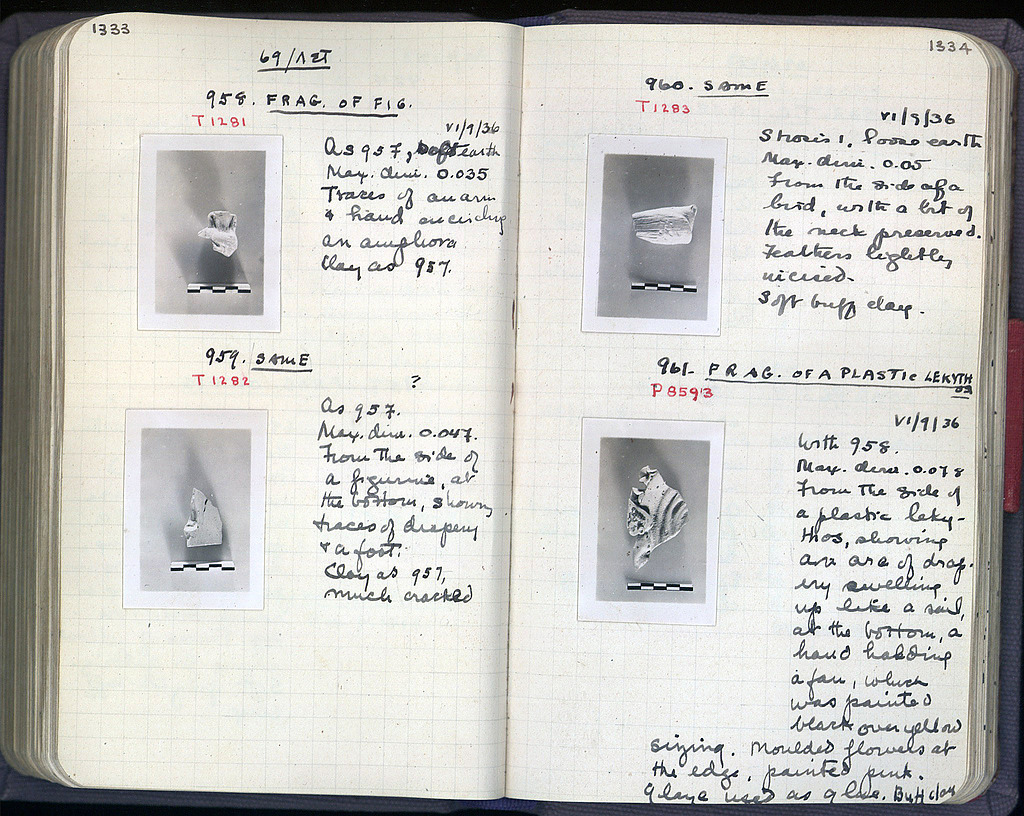 1333
69/ΛΣΤ
958. FRAG. OF FIG.
T 1281
VI/9/36
As 957, soft earth
Max. dim. 0.035
Traces of an arm
& hand encircling
an amphora
Clay as 957.
959. SAME
T 1282
?
As 957.
Max. dim. 0.047.
From the side of
a figurine, at
the bottom, showing
traces of drapery
& a foot.
Clay as 957,
much cracked
1334
960. SAME
T 1283
VI/9/36
Strosis 1, loose earth
Max. dim. 0.05
From the side of a
bird, with a bit of
the neck preserved.
Feathers lightly
incised.
Soft buff clay.
961. FRAG. OF A PLASTIC LEKYTH
OS
P 8593
VI/9/36
With 958.
Max. dim. 0.078
From the side of
a plastic leky-
thos, showing
an arc of drap-
ery swelling
up like a sail,
at the bottom, a
hand holding
a fan, which
was painted
black over yellow
sizing. Moulded flowers at
the edge, painted pink.
Glaze used as glue. Buff clay